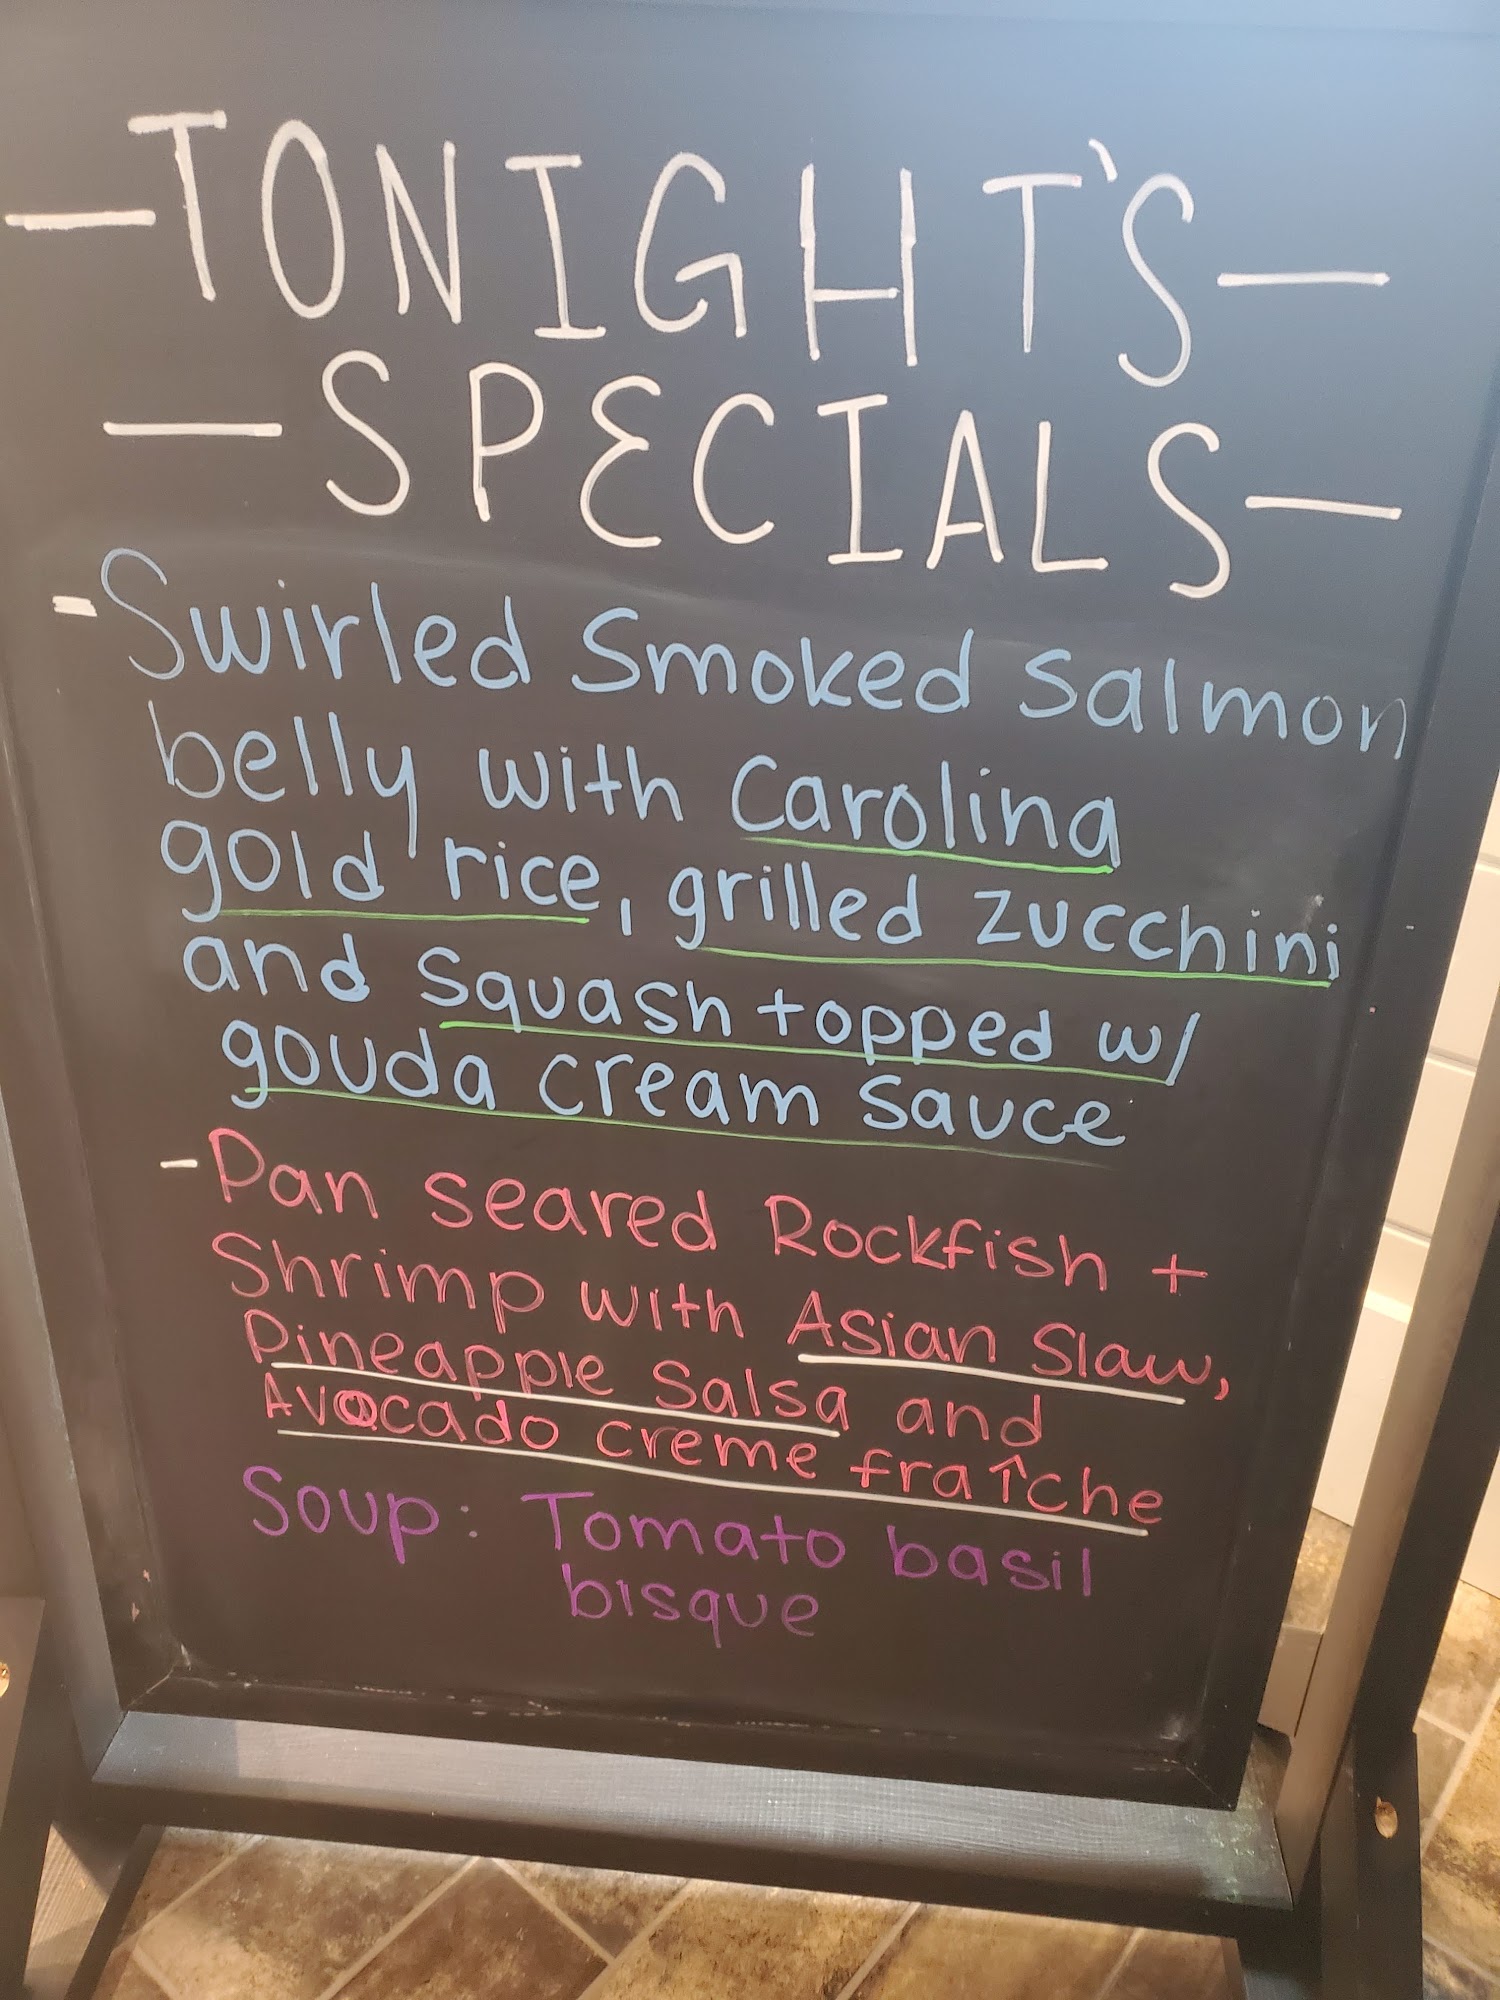 —TONIGHT'S—
—SPECIALS—
-Swirled Smoked Salmon
belly with Carolina
gold rice, grilled zucchini
and squash topped w/
gouda cream sauce
-Pan seared Rockfish +
Shrimp with Asian Slaw,
Pineapple Salsa and
Avocado creme fraîche
Soup: Tomato basil
bisque